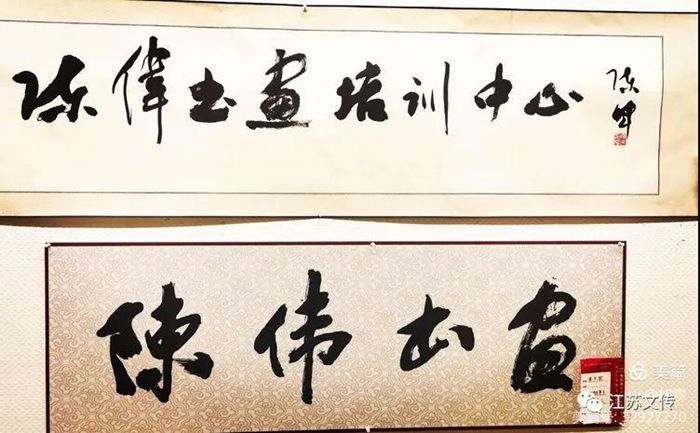 陈偉书画培训中心
陈伟
陳伟书画
美篇
江苏文传